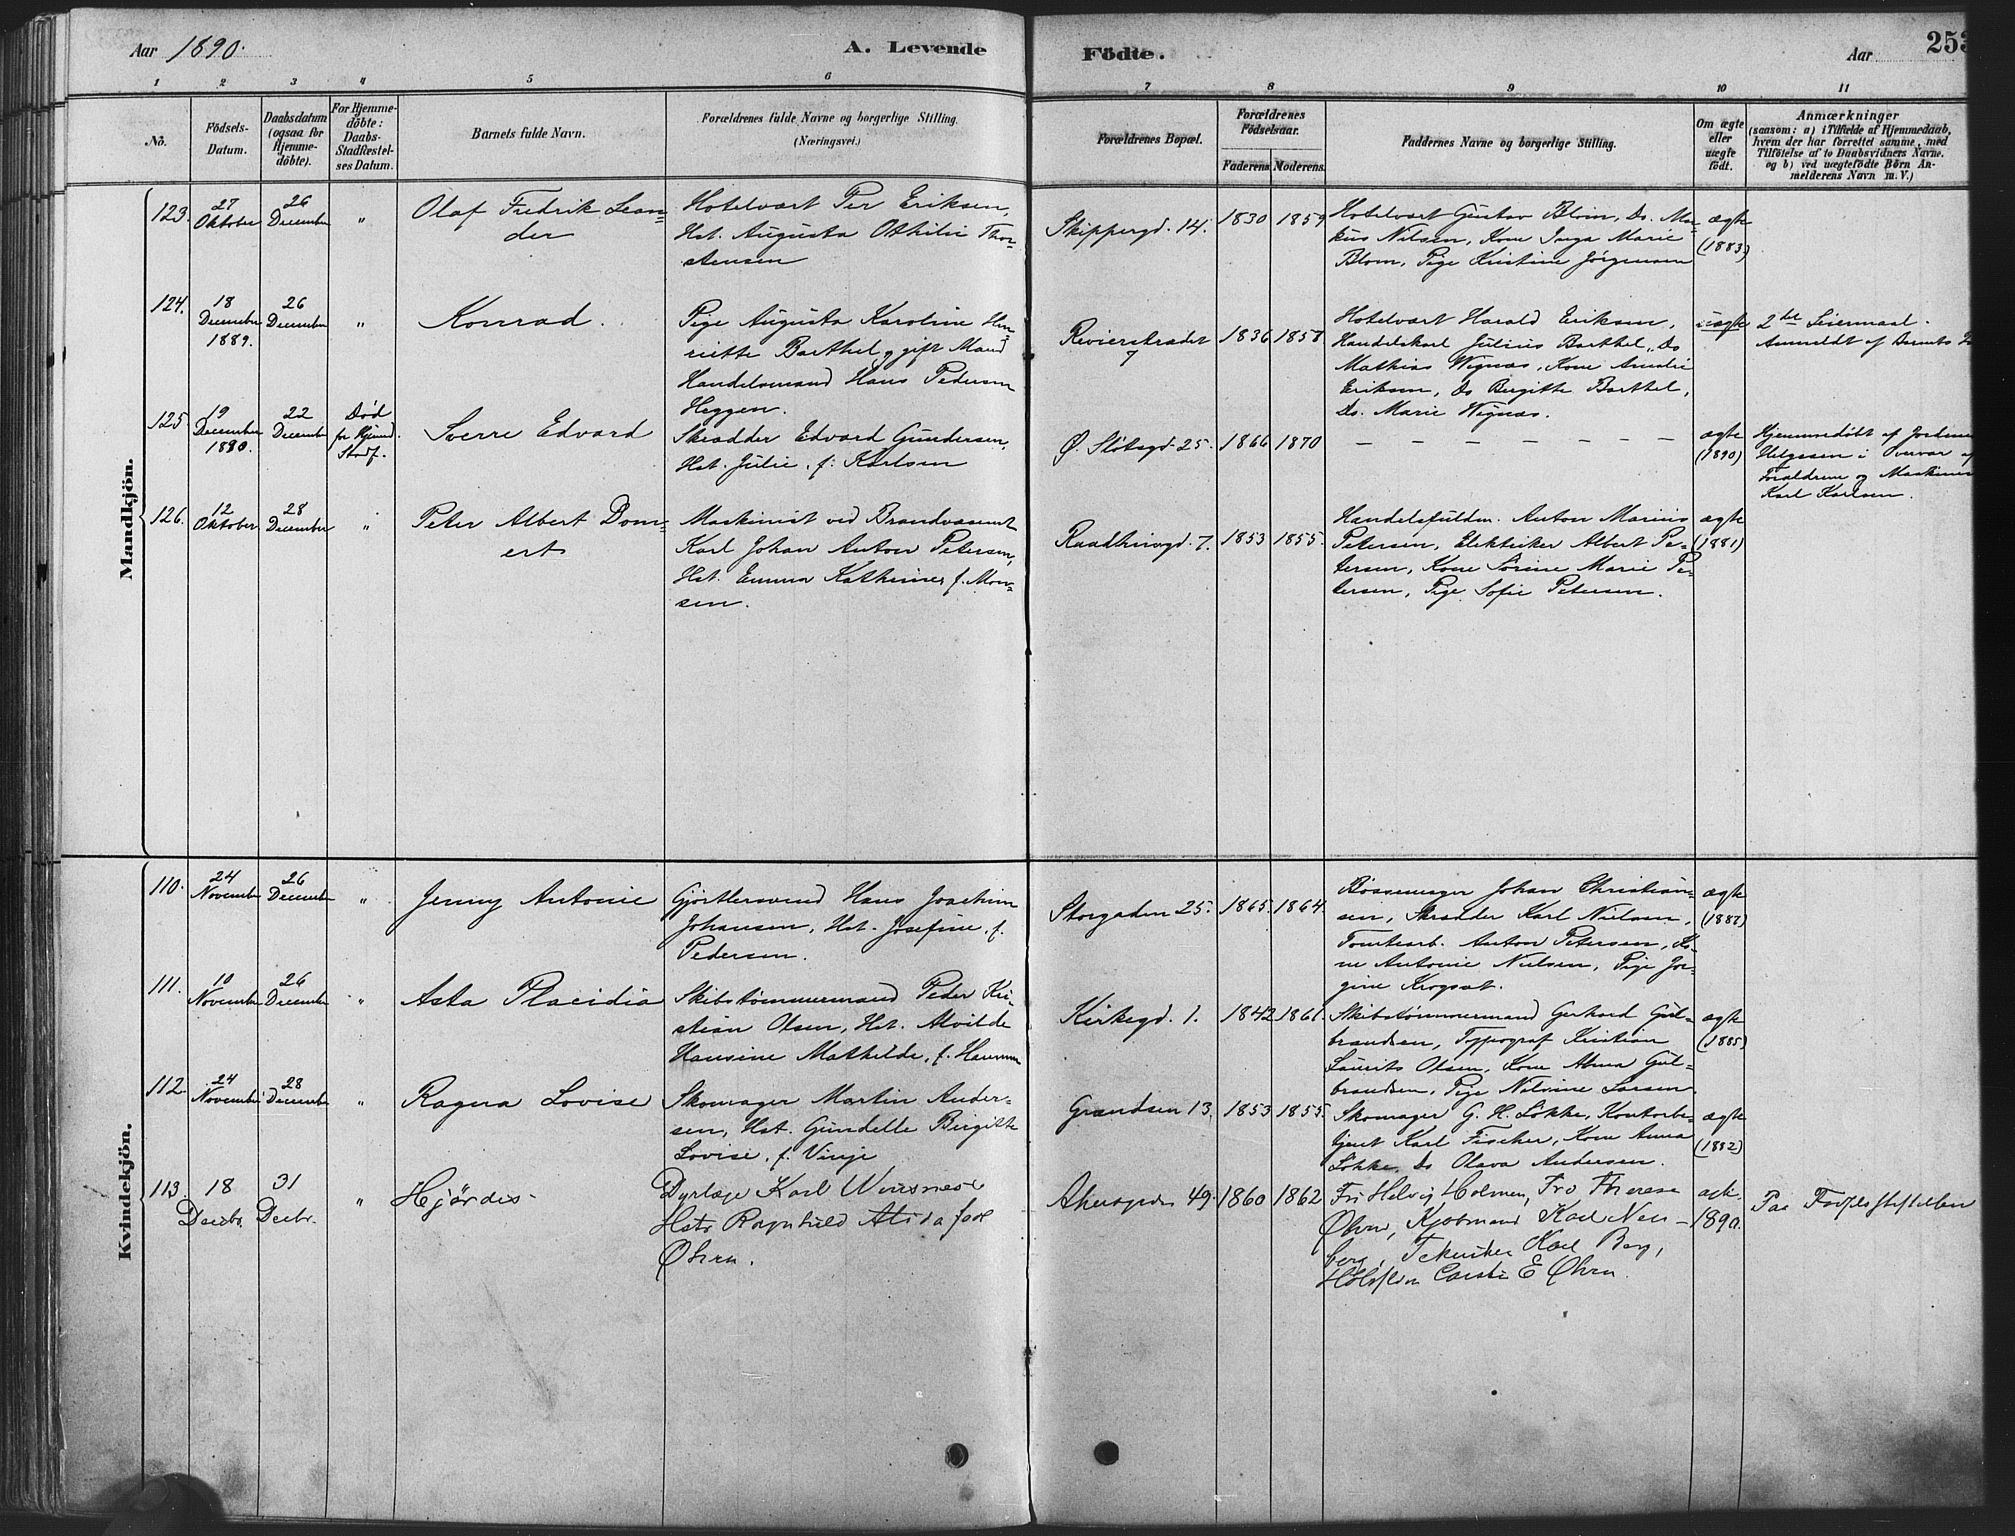 Aar 1890.
A. Levende
Födte.
Aar
253
1 2 3 4 5 6 7 8 9 10 11
No.
Födsels-
Datum.
Daabsdatum
(ogsaa for
Hjemme-
döbte).
For Hjemme-
döbte:
Daabs-
Stadfæstel-
ses Datum.
Barnets fulde Navn.
Forældrenes fulde Navne og borgerlige Stilling.
(Næringsvei.)
Forældrenes Bopæl.
Forældrenes
Födselsaar.
Faderens. Moderens.
Faddernes Navne og borgerlige Stilling.
Om ægte
eller
uægte
födt.
Anmærkninger
(saasom: a) i Tilfælde af Hjemmedaab,
hvem der har forrettet samme, med
Tilföielse af to Daabsvidners Navne,
og b) ved uægtefödte Börn An-
melderens Navn m. V.)
Mandkjön.
123.
27
Oktober
26
December
"
Olaf Fredrik Lean-
der
Hotelvært Per Eriksen,
Hst. Augusta Othilie Thor-
stensen
Skippergd. 14.
1830
1859
Hotelvært Gustav Blom, Do. Mar-
kus Nilsen, Kone Inga Marie
Blom, Pige Kristine Jörgensen
ægte
(1883)
124.
18
December
1889.
26
December
"
Konrad.
Pige Augusta Karoline Hen-
riette Barthel, gift Mand
Handelsmand Hans Pedersen
Heggen.
Revierstrædet
7
1836
1858
Hotelvært Harald Eriksen,
Handelskarl Julius Barthel, Do
Mathias Wignæs, Kone Amalie
Eriksen, Do Bergitte Barthel,
Do. Marie Wignæs.
uægte
2det Leiermaal.
Anmeldt af Barnets
125.
19
December
1890.
22
December
Död
før Kjend.
Stadf.
Sverre Edvard
Skrædder Edvard Gundersen,
Hst. Julie, f. Karlsen
Ø. Slotsgd. 25.
1866
1870
– – – – – – –
ægte
(1890)
Hjemmedöbt af Jordmor
Helgesen i Overvær af
Forældrene og Maskinist
Karl Karlsen.
126.
12
Oktober
28
December
"
Peter Albert Dom-
ert
Maskinist ved Brandvæsenet
Karl Johan Anton Petersen,
Hst. Emma Kathinea f. Mon-
sen.
Raadhusgd. 7.
1853
1855.
Handelsfuldm. Anton Marius
Petersen, Elektriker Albert Pe-
tersen, Kone Sörine Marie Pe-
tersen, Pige Sofie Petersen.
ægte
(1881)
Kvindekjön.
110.
24
November
26
December
"
Jenny Antonie
Gjörtlersvend Hans Joachim
Johansen, Hst. Josefine, f.
Pedersen.
Storgaden 25.
1865.
1864.
Bössemager Johan Christian-
sen, Skrædder Karl Nielsen,
Tomtearb. Anton Petersen, Ko-
ne Antonie Nielsen, Pige Jor-
gine Krogsæt.
ægte
(1887)
111.
10
November
26
December
"
Asta Placidia
Skibstömmermand Peder Kri-
stian Olsen, Hst. Alvilde
Hansine Mathilde, f. Hansen
Kirkegd. 1.
1842
1861.
Skibstömmermand Gerhard Gul-
brandsen, Typograf Kristian
Laurits Olsen, Kone Alma Gul-
brandsen, Pige Nilsine Larsen
ægte
(1885)
112.
24
November
28
December
"
Ragna Lovise
Skomager Martin Ander-
sen, Hst. Gundelle Birgitte
Lovise, f. Vinje
Grændsen 13.
1853
1855.
Skomager G. H. Lökke, Kontorbe-
tjent Karl Fischer, Kone Anna
Lökke, Do Olava Andersen.
ægte
(1882)
113.
18
Decbr.
31
Decbr.
"
Hjördis
Dyrlæge Karl Winsnes
Hstr Ragnhild Alida født
Øhrn.
Akersgaden 49.
1860
1862
Fri Helvig Holmen, Fro Therese
Øhrn, Kjøbmand Karl Neu-
berg, Tekniker Karl Berg,
Carsti E Øhrn.
ægt.
1890.
Paa Födselsstiftelsen